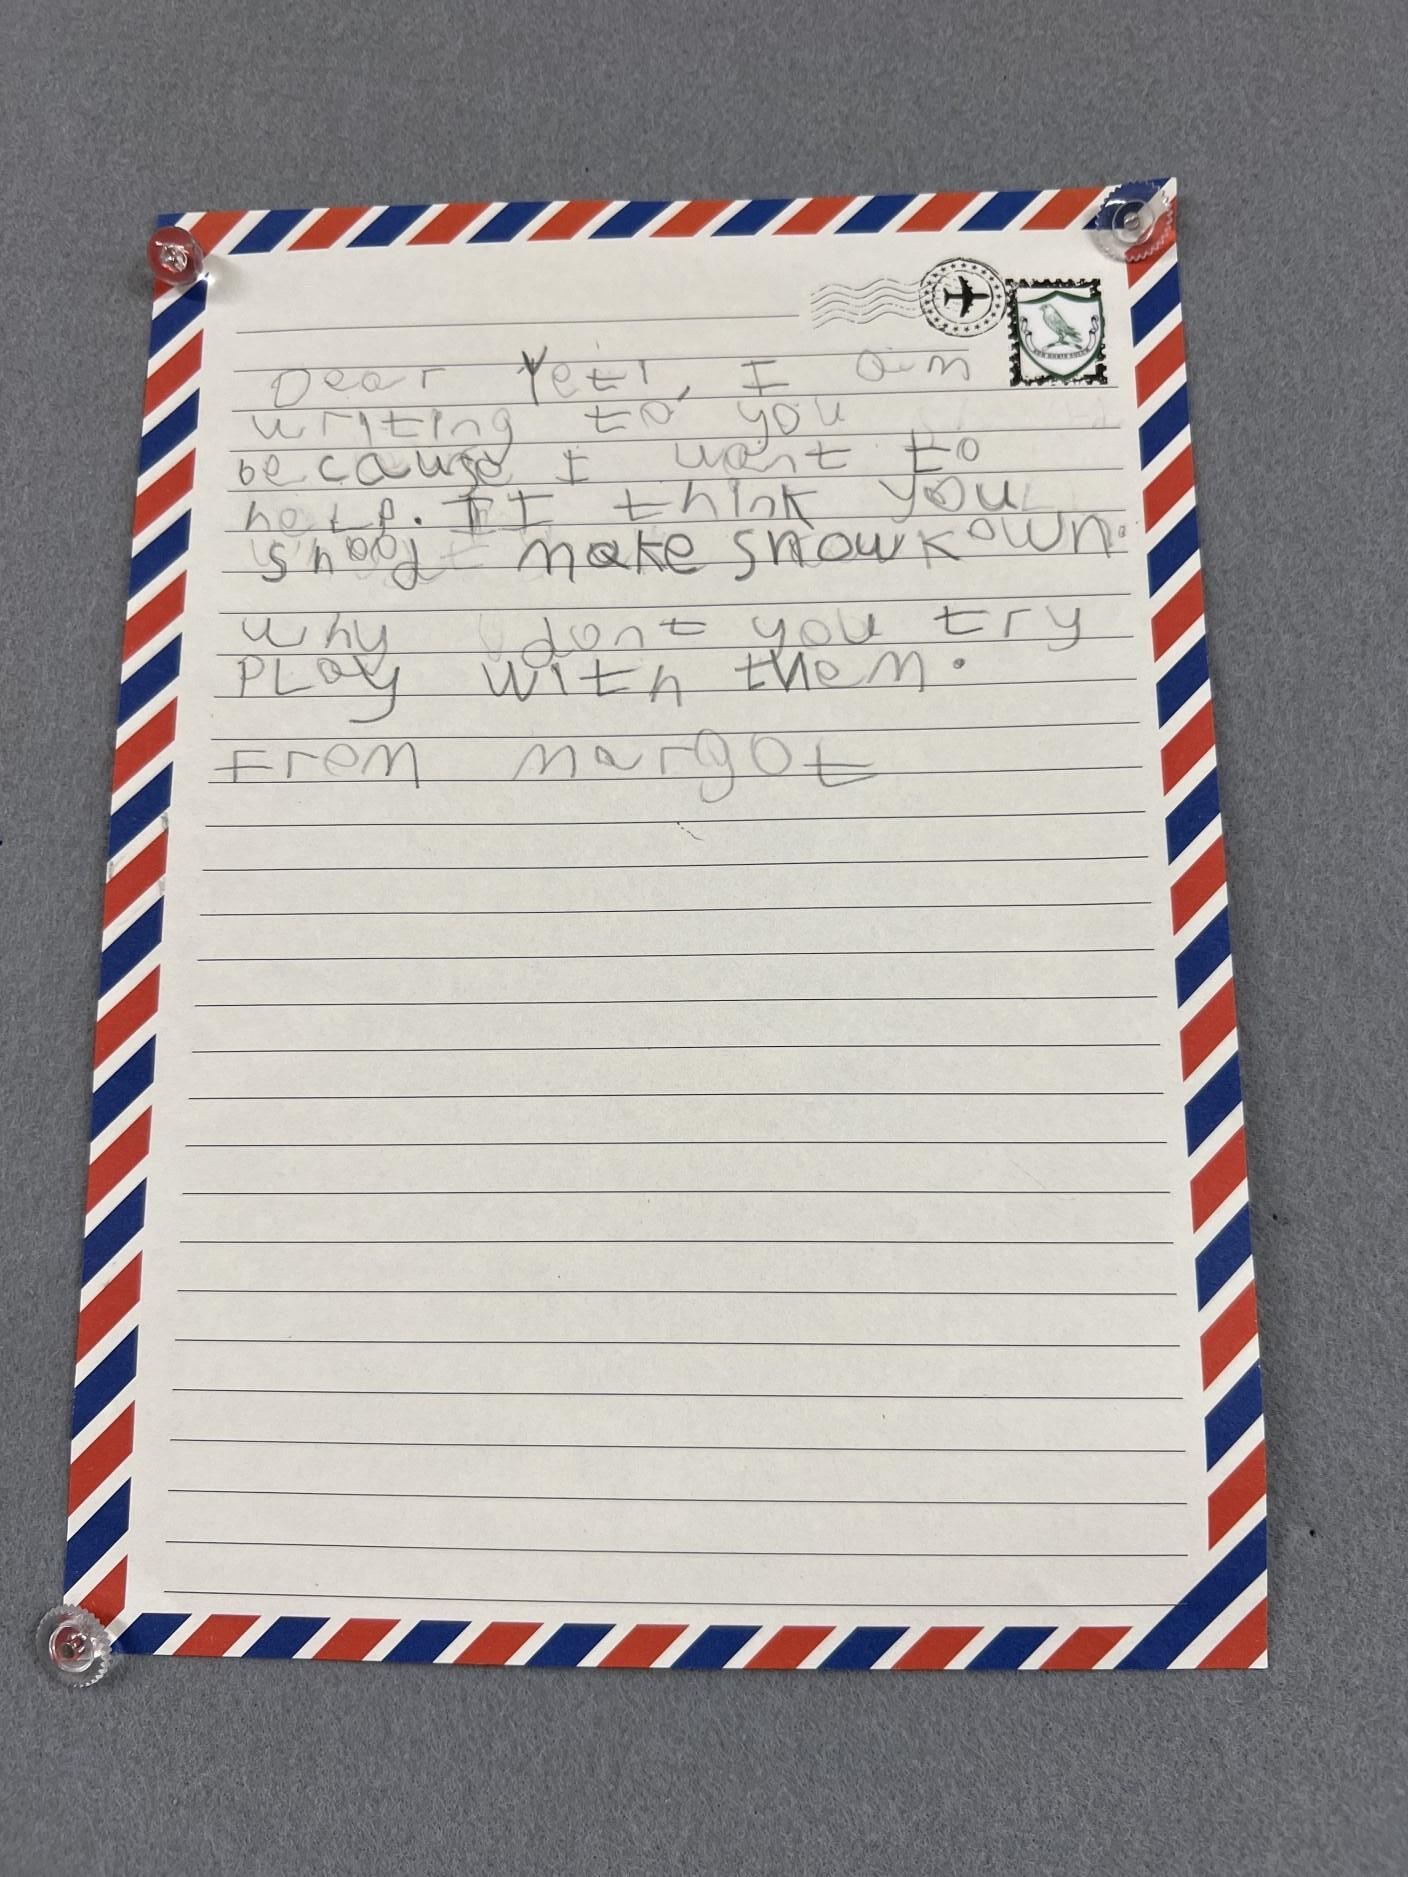 Dear Yeti, I am
writing to you
because I want to
help. I I think you
shood make snowkown.
why dont you try
PLay with them.
From margot